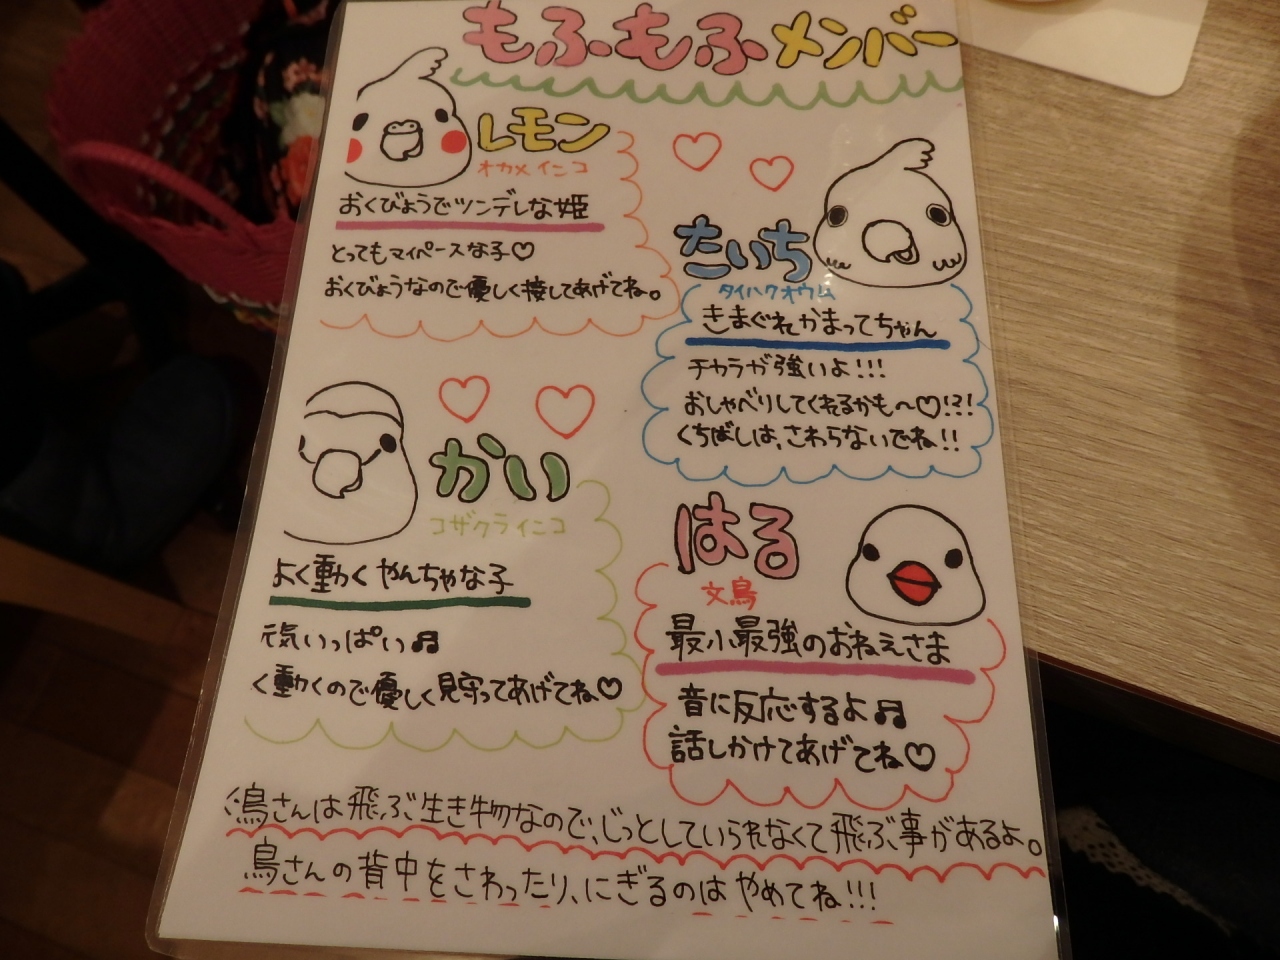 もふもふメンバー
レモン
オカメインコ
おくびょうでツンデレな姫
とってもマイペースな子♡
おくびょうなので優しく接してあげてね。
たいち
タイハクオウム
きまぐれかまってちゃん
チカラが強いよ!!!
おしゃべりしてくれるかも〜♡!?!
くちばしは、さわらないでね!!
かい
コザクラインコ
よく動くやんちゃな子
元気いっぱい♫
く動くので優しく見守ってあげてね♡
はる
文鳥
最小最強のおねえさま
音に反応するよ♫
話しかけてあげてね♡
鳥さんは飛ぶ生き物なので、じっとしていられなくて飛ぶ事があるよ。
鳥さんの背中をさわったり、にぎるのはやめてね!!!